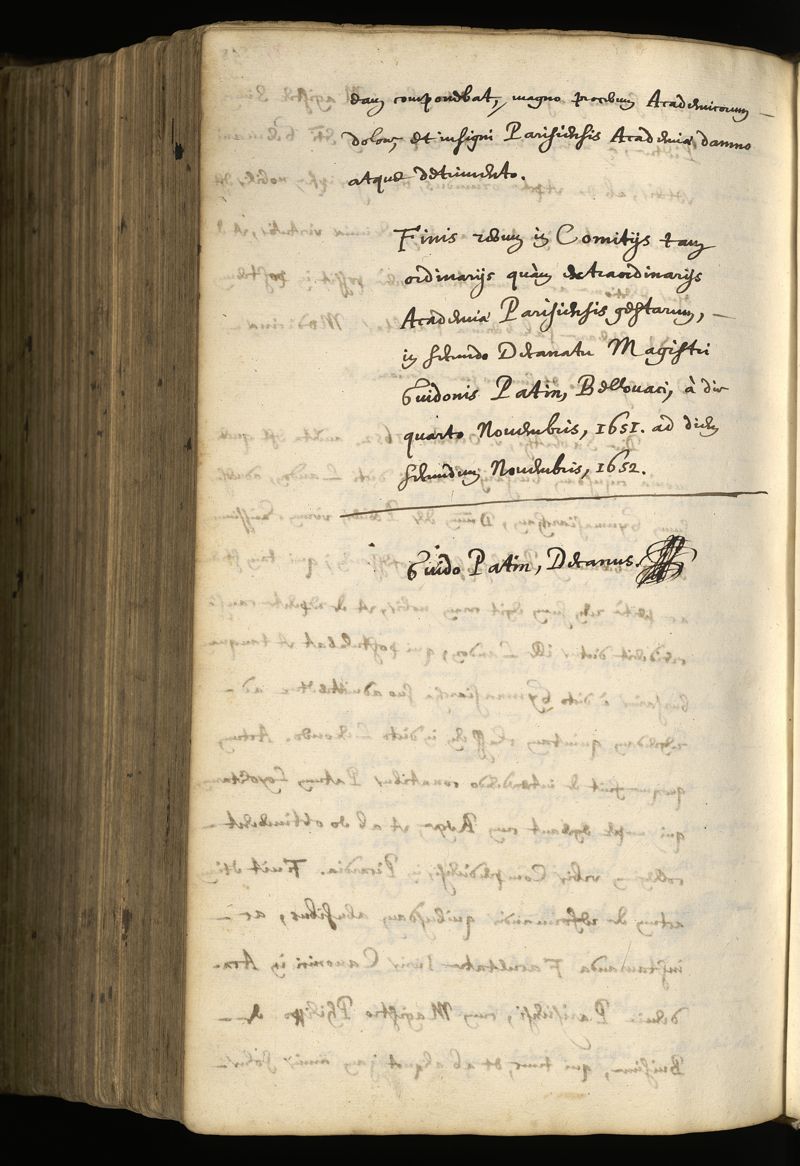 eam componebat, magno procerum Academicorum
dolore, et insigni Parisiensis Academiæ damno
atque detrimento.
Finis rerum in Comitijs tam
ordinarijs quàm extraordinarijs
Academiæ Parisiensis gestarum,
in secundo Decanatu Magistri
Guidonis Patin, Bellovaci, à die
quarto Novembris, 1651. ad diem
secundum Novembris, 1652.
Guido Patin, Decanus.